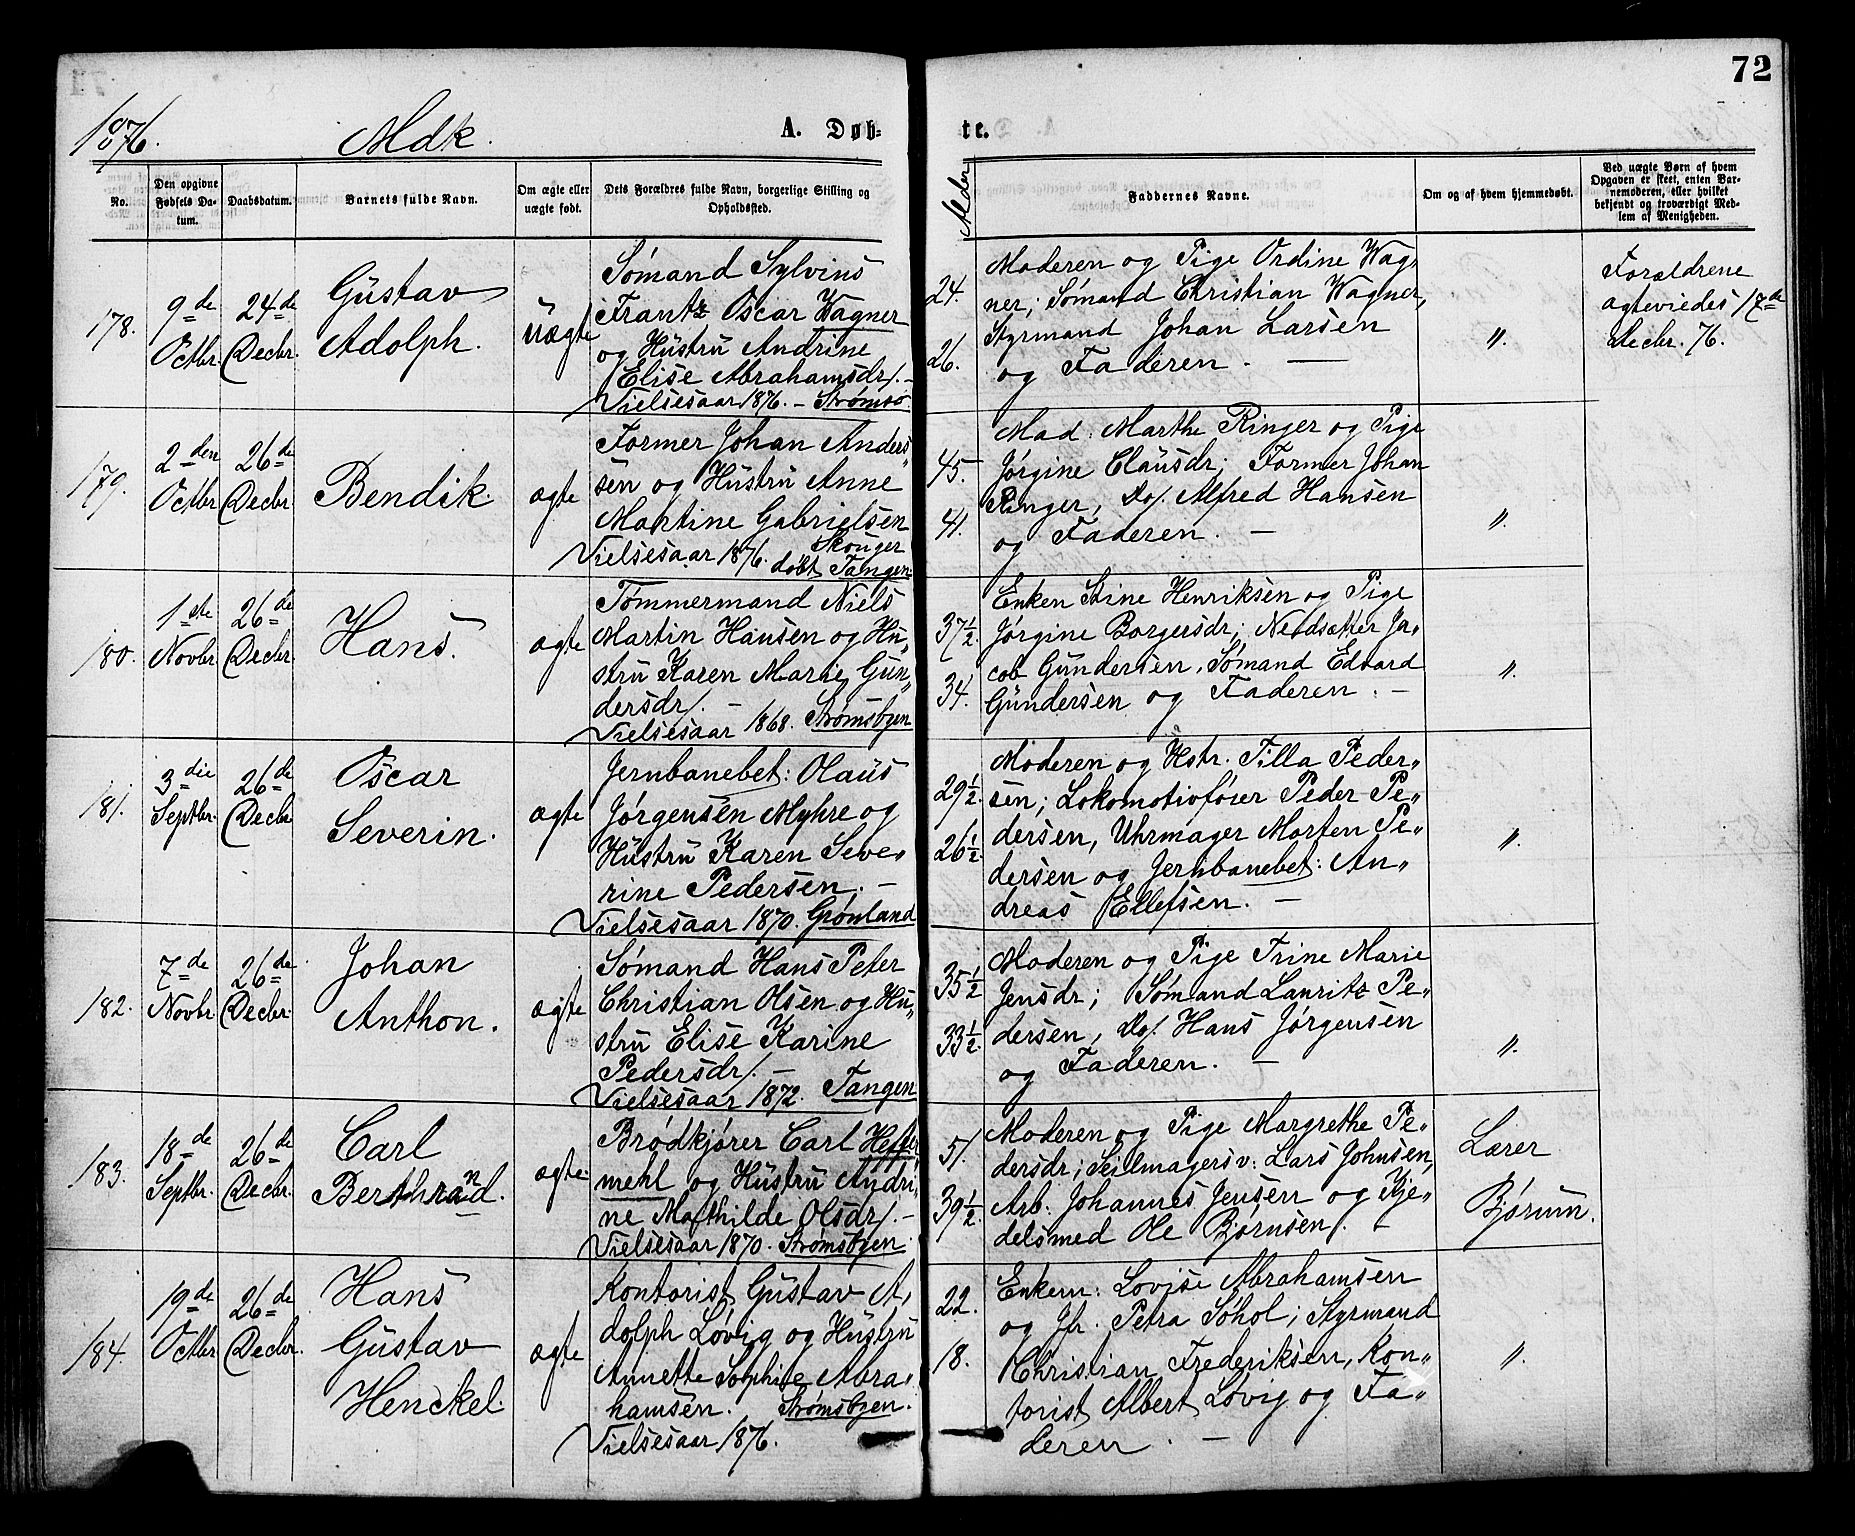 72
1876. Mdk. A. Døb- te.
No.
Den opgivne Fødsels Da-
tum.
Daabsdatum.
Barnets fulde Navn.
Om ægte eller
uægte født.
Dets Forældres fulde Navn, borgerlige Stilling og
Opholdssted.
Alder
Faddernes Navne.
Om og af hvem hjemmedøbt.
Ved uægte Børn af hvem
Opgaven er skeet, enten Bar-
nemoderen, eller hvilket
bekjendt og troværdigt Med-
lem af Menigheden.
178.
9de
Octbr.
24de
Decbr.
Gustav
Adolph.
uægte
Sømand Sylvius
Frantz Oscar Wagner
og Hustru Andrine
Elise Abrahamsdr/. -
Vielsesaar 1876. - Strømsø.
24.
26.
Moderen og Pige Ordine Wag-
ner; Sømand Christian Wagner,
Styrmand Johan Larsen
og Faderen. —
"
Forældrene
ægteviedes 17de
Decbr. 76.
179.
2den
Octbr.
26de
Decbr.
Bendik.
ægte
Former Johan Anders-
sen og Hustru Anne
Martine Gabrielsen
Vielsesaar 1876. Skouger
døbt Tangen.
45.
41.
Mad: Marthe Ringer og Pige
Jørgine Clausdr; Former Johan
Ringer, Do/. Alfred Hansen
og Faderen. —
"
180.
1ste
Novbr.
26de
Decbr.
Hans.
ægte
Tømmermand Niels
Martin Hansen og Hu-
stru Karen Marie Gun-
dersdr/. -
Vielsesaar 1868. Strømsbyen
37½
34.
Enken Stine Henriksen og Pige
Jørgine Borgersdr; Nedsætter Ja-
cob Gundersen, Sømand Edvard
Gundersen og Faderen. -
"
181.
3die
Septbr.
26de
Decbr.
Oscar
Severin.
ægte
Jernbanebet: Olaus
Jørgensen Myhre og
Hustru Karen Seve-
rine Pedersen. -
Vielsesaar 1870. Grønland
29½.
26½.
Moderen og Hstr. Tilla Peder-
sen; Lokomotivfører Peder Pe-
dersen, Uhrmager Morten Pe-
dersen og Jernbanebet: An-
dreas Ellefsen. -
"
182.
7de
Novbr.
26de
Decbr.
Johan
Anthon.
ægte
Sømand Hans Peter
Christian Olsen og Hu-
stru Elise Karine
Pedersdr/. -
Vielsesaar 1872. Tangen
35½
33½.
Moderen og Pige Trine Marie
Jensdr; Sømand Lauritz Pe-
dersen, Do/. Hans Jørgensen
og Faderen. —
"
183.
18de
Septbr.
26de
Decbr.
Carl
Berthrand.
ægte.
Brødkjører Carl Hefter
mehl og Hustru Andri-
ne Mathilde Olsdr/. -
Vielsesaar 1870. Strømsbyen.
51.
39½.
Moderen og Pige Margrethe Pe-
dersdr; Seilmagersv: Lars Johnsen,
Arb: Johannes Jensen og Kje-
delsmed Ole Bjørnsen/. -
Lærer
Bjørum.
184.
19de
Octbr.
26de
Decbr.
Hans
Gustav
Henckel.
ægte
Kontorist Gustav A-
dolph Løvig og Hustru
Annette Sophie Abra-
hamsen. Strømsbyen.
Vielsesaar 1876.
22.
18.
Enken: Lovise Abrahamsen
og Jfr. Petra Søhol; Styrmand
Christian Frederiksen, Kon-
torist Albert Løvig og Fa-
deren. —
"